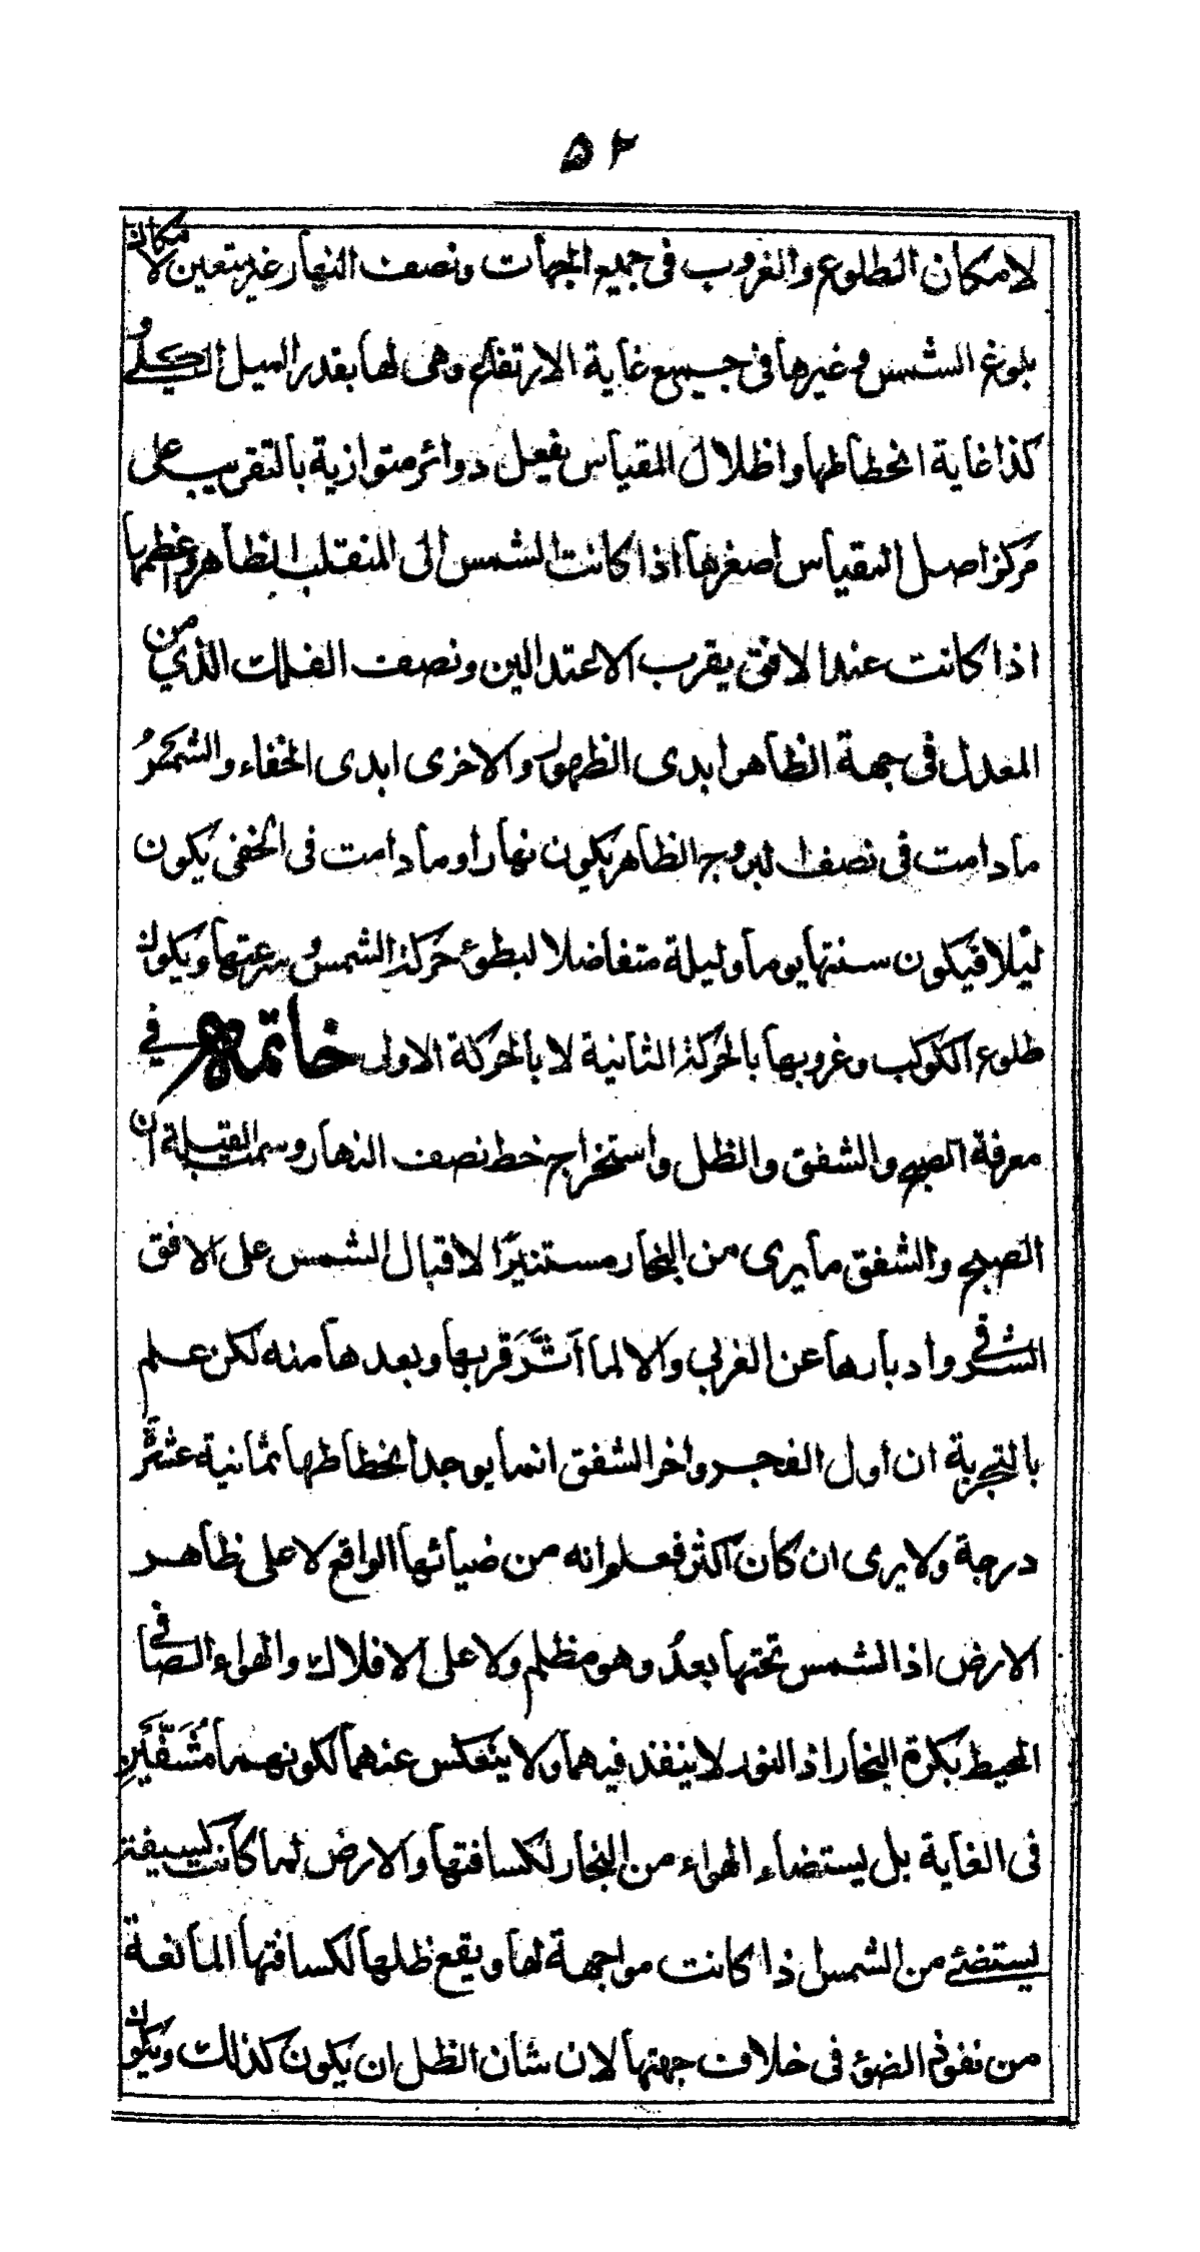 ۵۲
لامكان الطلوع والغروب فى جميع الجهات ونصف النهار غير متعين لامكان
بلوغ الشمس وغيرها فى جميع غاية الارتفاع وهى لها بقدر الميل الكلى و
كذا غاية انحطاطها واظلال المقياس تفعل دوائر متوازية بالتقريب على
مركز اصل المقياس اصغرها اذا كانت الشمس الى المنقلب الظاهر واعظمها
اذا كانت عند الافق يقرب الاعتدالين ونصف الفلك الذي من
المعدل فى جهة الظاهر ابدى الظهور والاخرى ابدى الخفاء والشمس
ما دامت فى نصف البروج الظاهر يكون نهارا وما دامت فى الخفى يكون
ليلا فيكون سنتها يوما وليلة متفاضلا لبطوء حركة الشمس و سرعتها ويكون
طلوع الكوكب وغروبها بالحركة الثانية لا بالحركة الاولى خاتمه في
معرفة الصبح والشفق والظل واستخراج خط نصف النهار وسمت القبلة ان
الصبح والشفق ما يرى من البخار مستنيرًا لاقبال الشمس على الافق
الشرقي وادبارها عن الغربي والا لما اَثَّرَ قربها وبعدها منه لكن علم
بالتجربة ان اول الفجر واخر الشفق انما يوجد انحطاطها ثمانية عَشَرَةَ
درجة ولا يرى ان كان اكثر فعلوا انه من ضيائها الواقع لا على ظاهر
الارض اذ الشمس تحتها بعدُ وهو مظلم ولا على الافلاك والهواء الصافي
المحيط بكرة البخار اذ النور لا ينفذ فيهما ولا ينعكس عنهما لكونهما مُشَفَّيْنِ
فى الغاية بل يستضاء الهواء من البخار لكسافتها والارض لما كانت كسيفة
ليستضئے من الشمس اذا كانت مواجهة لها ويقع ظلها لكسافتها المانعة
من نفوذ الضوء فى خلاف جهتها لان شان الظل ان يكون كذلك ويكون